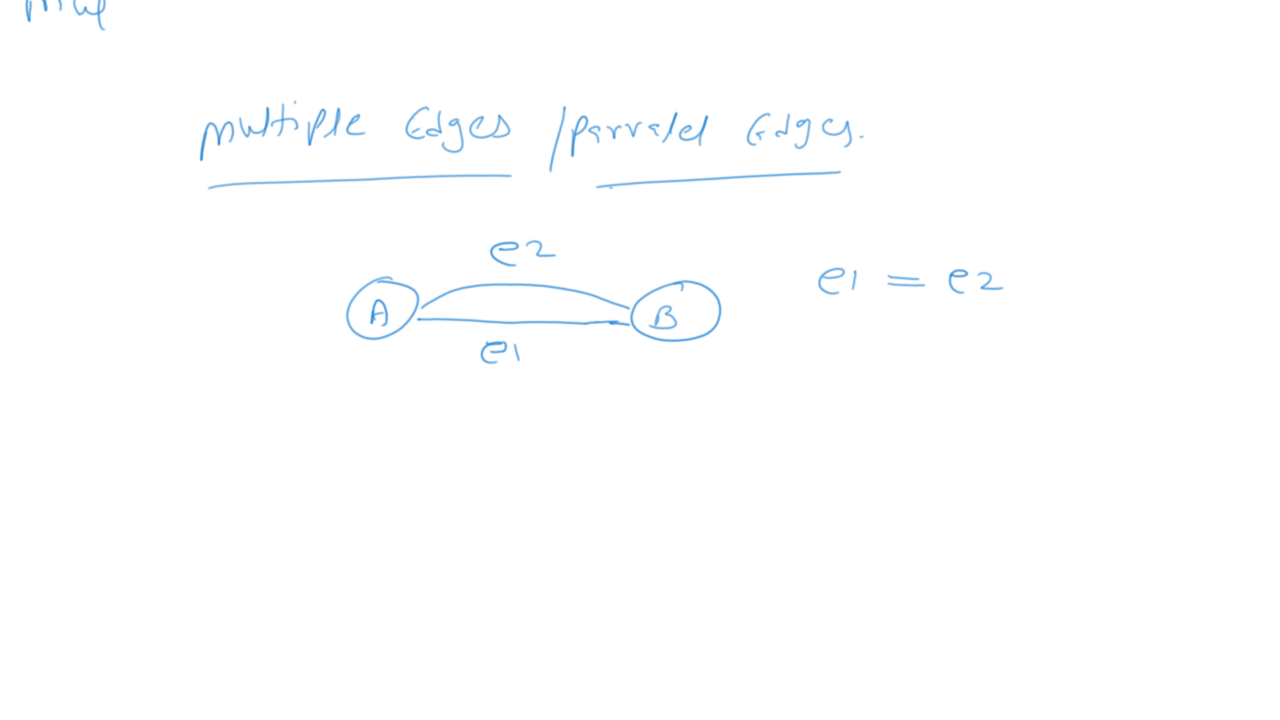 multiple Edges / parralel Edges.
e2
A B
e1 = e2
e1